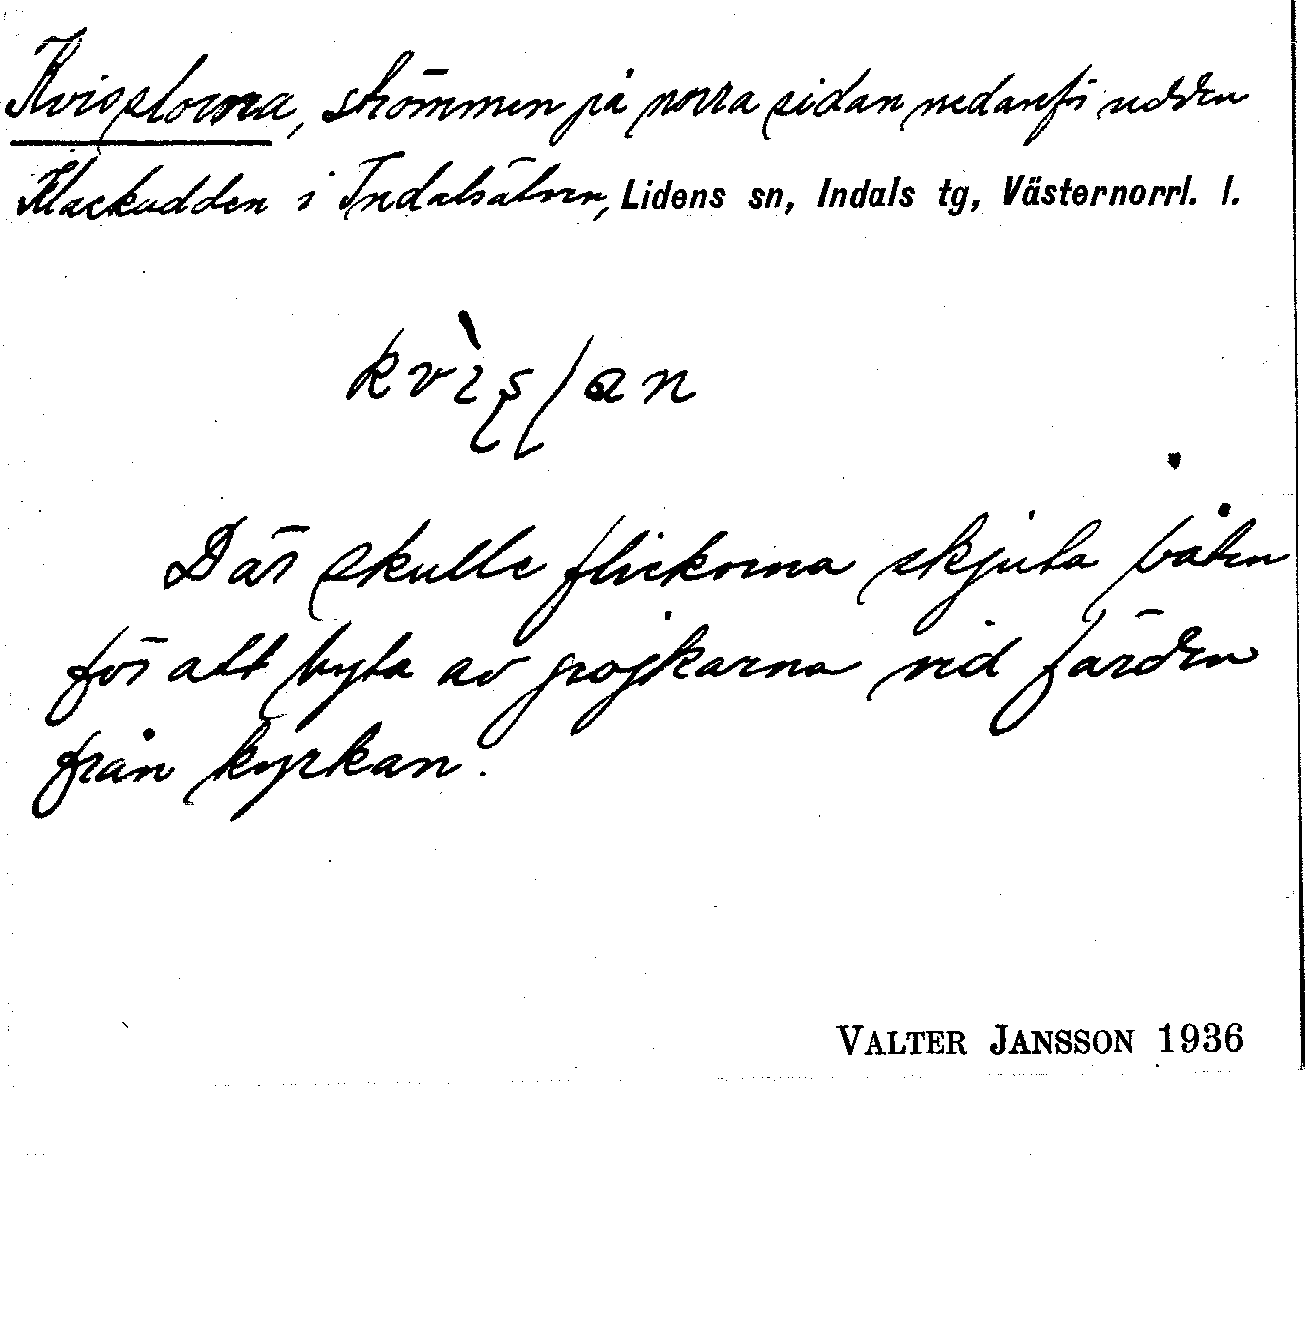 Kvisslorna, strömmen på norra sidan nedanför udden
Klackudden i Indalsälven, Lidens sn, Indals tg, Västernorrl. l.
Där skulle flickorna skjuta båten
för att byta av pojkarna vid färden
från kyrkan.
VALTER JANSSON 1936